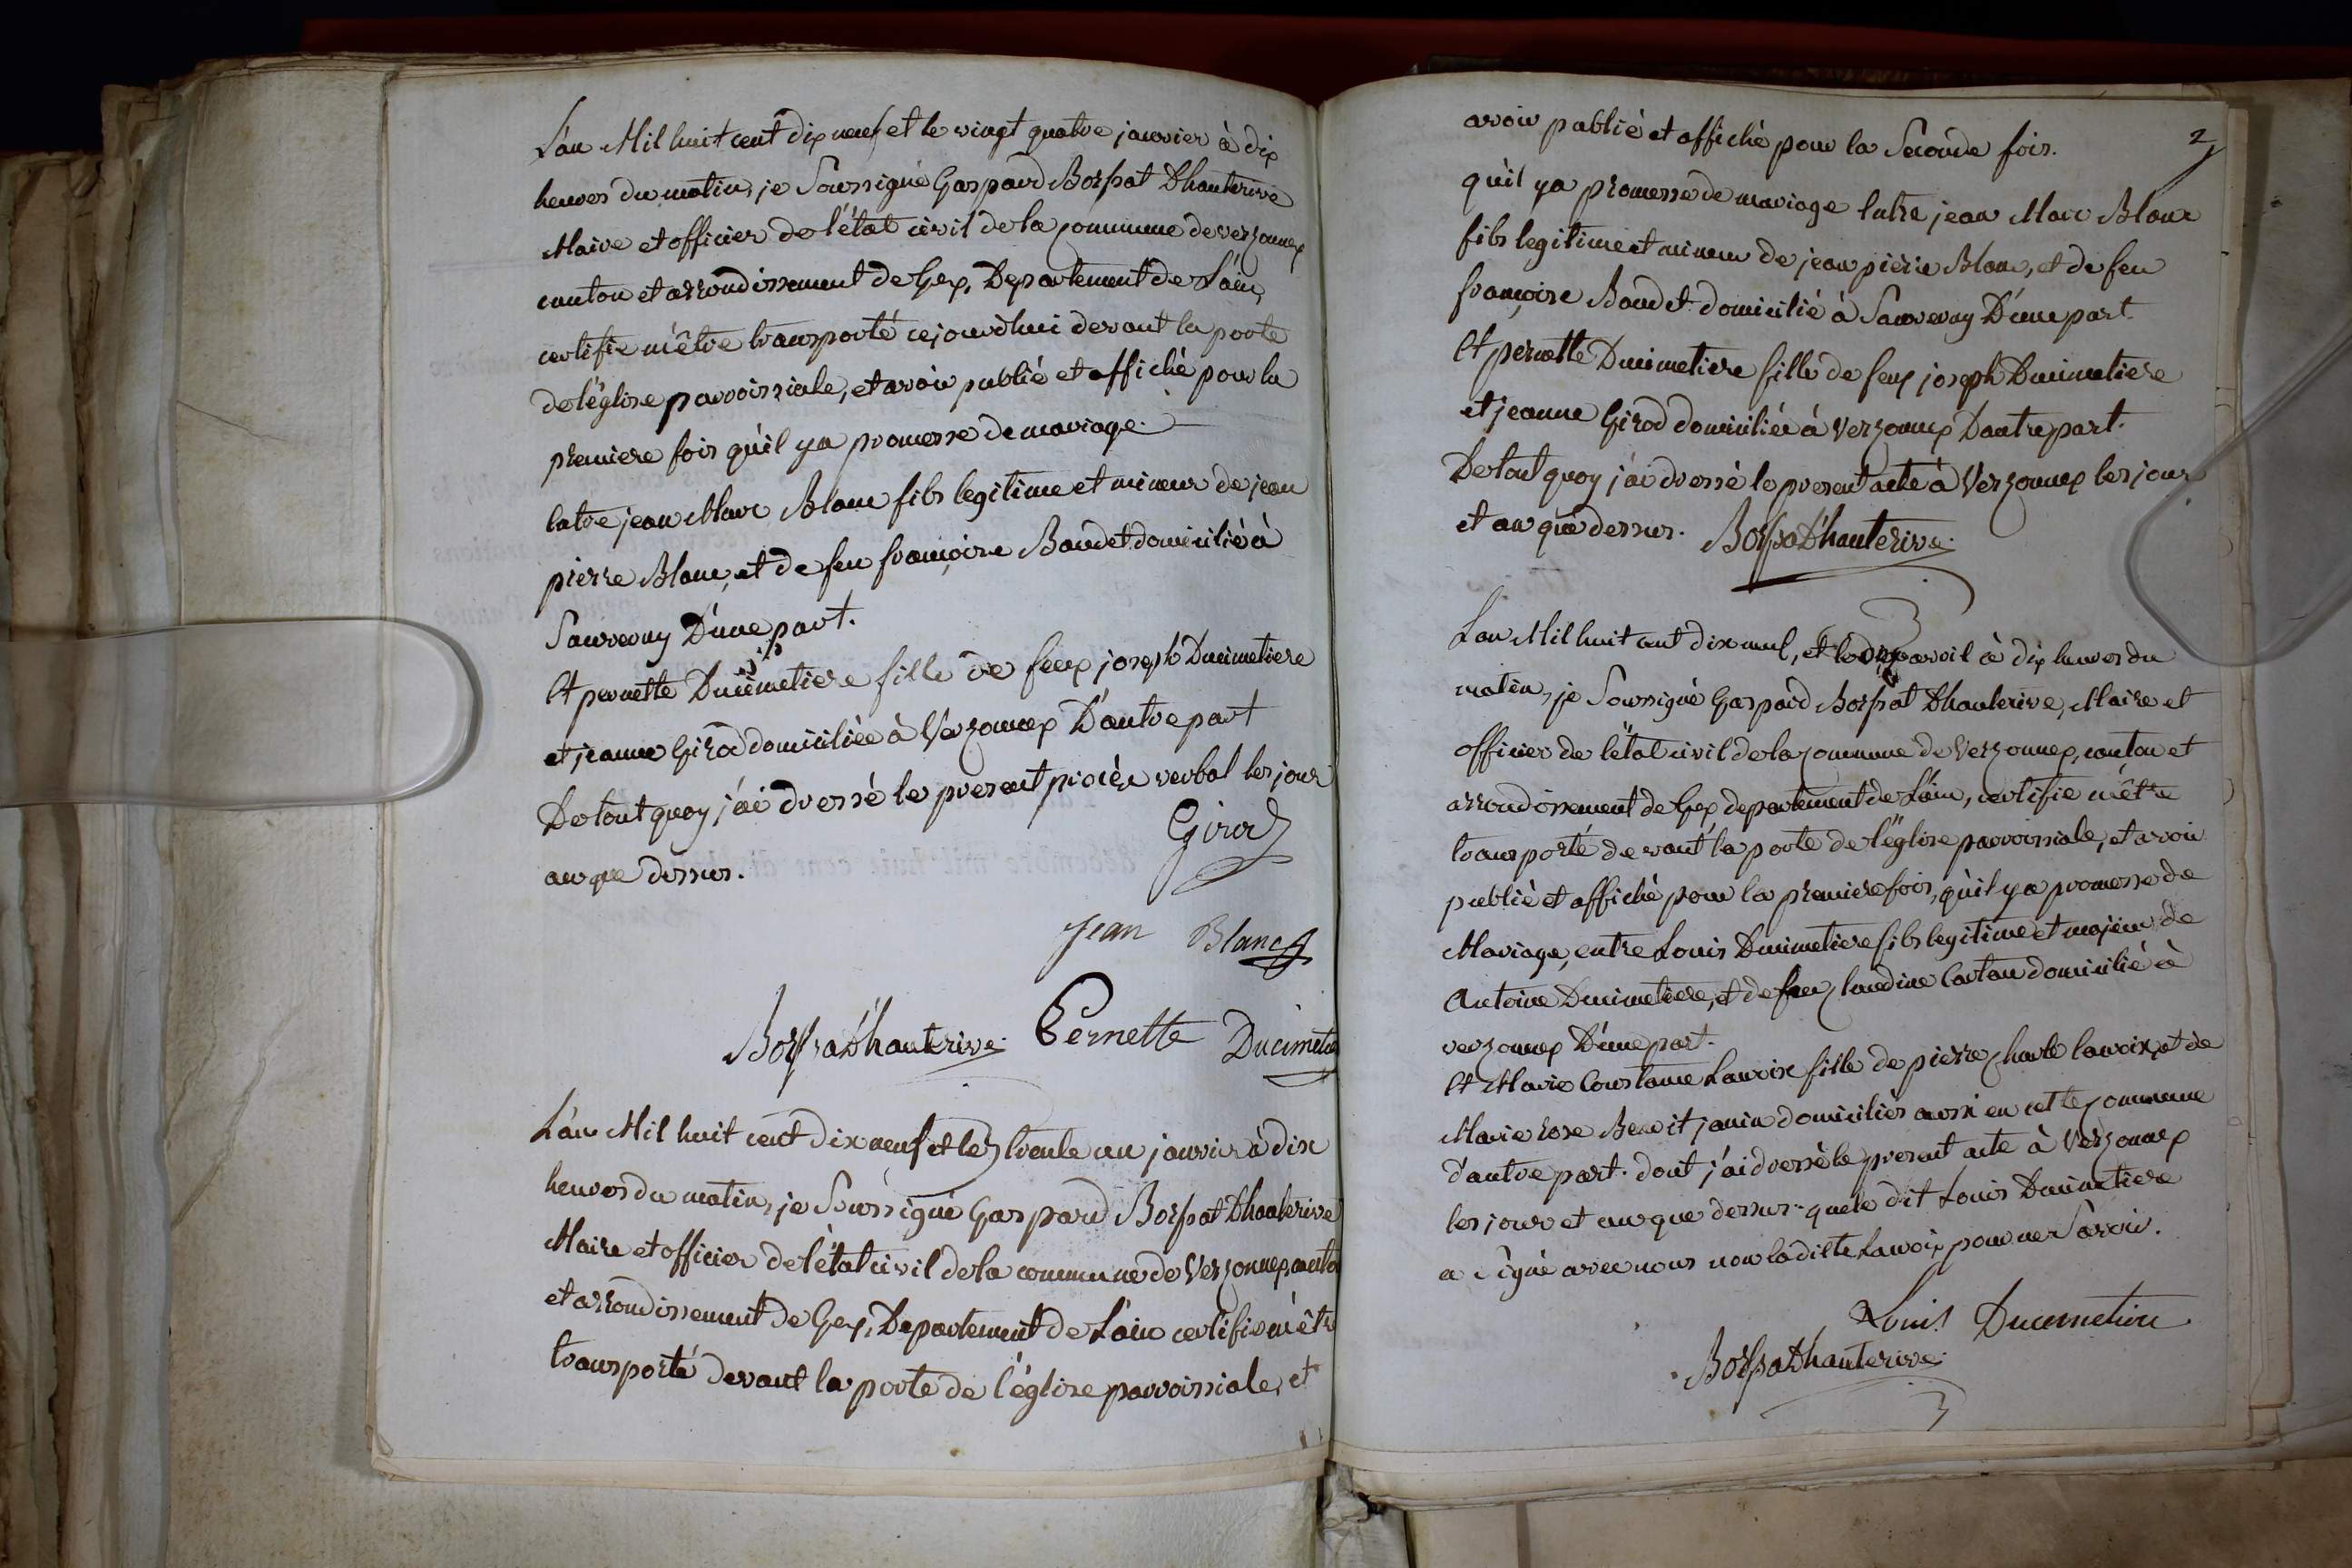 L'an Mil huit cent dix neuf et le vingt quatre janvier à dix
heures du matin, je Soussigné Gaspard Borssat Dhauterive
Maire et officier de l'état civil de la commune de versonnex
canton et arrondissement de Gex, Departement de L'ain,
certifie m'être transporté cejourdhui devant la porte
de l'église parroissiale, et avoir publié et affiché pour la
premiere fois qu'il ya promesse de mariage.
Entre jean Marc Blanc fils legitime et mineur de jean
pierre Blanc, et de feu françoise Baudet domicilié à
Sauverny D'une part.
Et pernette Ducimetiere fille de feux joseph Ducimetiere
et jeanne Girod domiciliée à Versonnex D'autre part
De tout quoy j'ai dressé le present procés verbal les jour
an que dessus.
Girod
Jean Blanc
Borssat Dhauterive Pernette Ducimet
L'an Mil huit cent dix neuf et le trente un janvier à dix
heures du matin, je Soussigné Gaspard Borssat Dhauterive
Maire et officier de l'état civil de la commune de Versonnex, canton
et arrondissement de Gex, Departement de L'ain certifie m'être
transporté devant la porte de l'église parroissiale, et
2
avoir publié et affiché pour la Seconde fois.
qu'il ya promesse de mariage Entre jean Marc Blanc
fils legitime et mineur de jean pierre Blanc, et de feu
françoise Baudet domicilié à Sauverny D'une part
Et pernette Ducimetiere fille de feux joseph Ducimetiere
et jeanne Girod domiciliée à Versonnex D'autre part.
De tout quoy j'ai dressé le present acte à Versonnex les jour
et an que dessus. Borssat Dhauterive
L'an Mil huit cent dix neuf, et le avril à dix heures du
matin, je Soussigné Gaspard Borssat Dhauterive, Maire et
officier de l'état civil de la commune de Versonnex, canton et
arrondissement de Gex, departement de L'ain, certifie m'être
transporté devant la porte de l'église parroissiale, et avoir
publié et affiché pour la premiere fois, qu'il ya promesse de
Mariage, entre Louis Ducimetiere fils legitime et majeur de
Antoine Ducimetiere, et de feu Claudine domicilié à
versonnex D'une part.
Et Marie Constance Lavoix fille de pierre charle lavoix, et de
Marie rose Benoit janin domiciliés aussi en cette commune
d'autre part. dont j'ai dressé le present acte à Versonnex
les jour et an que dessus. que le dit Louis Ducimetiere
a signé avec nous non ladite Lavoix pour ne Savoir.
Louis Ducimetiere
Borssat Dhauterive